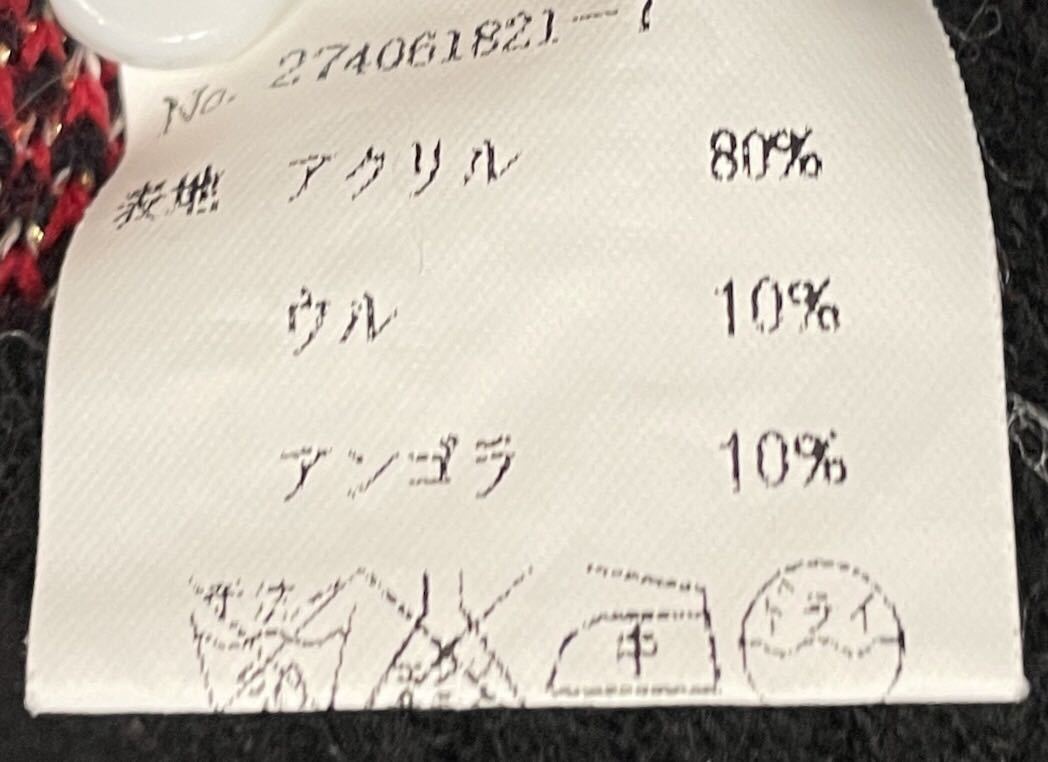 No. 274061821-1
表地 アクリル 80%
ウル 10%
アンゴラ 10%
手洗 中 ドライ